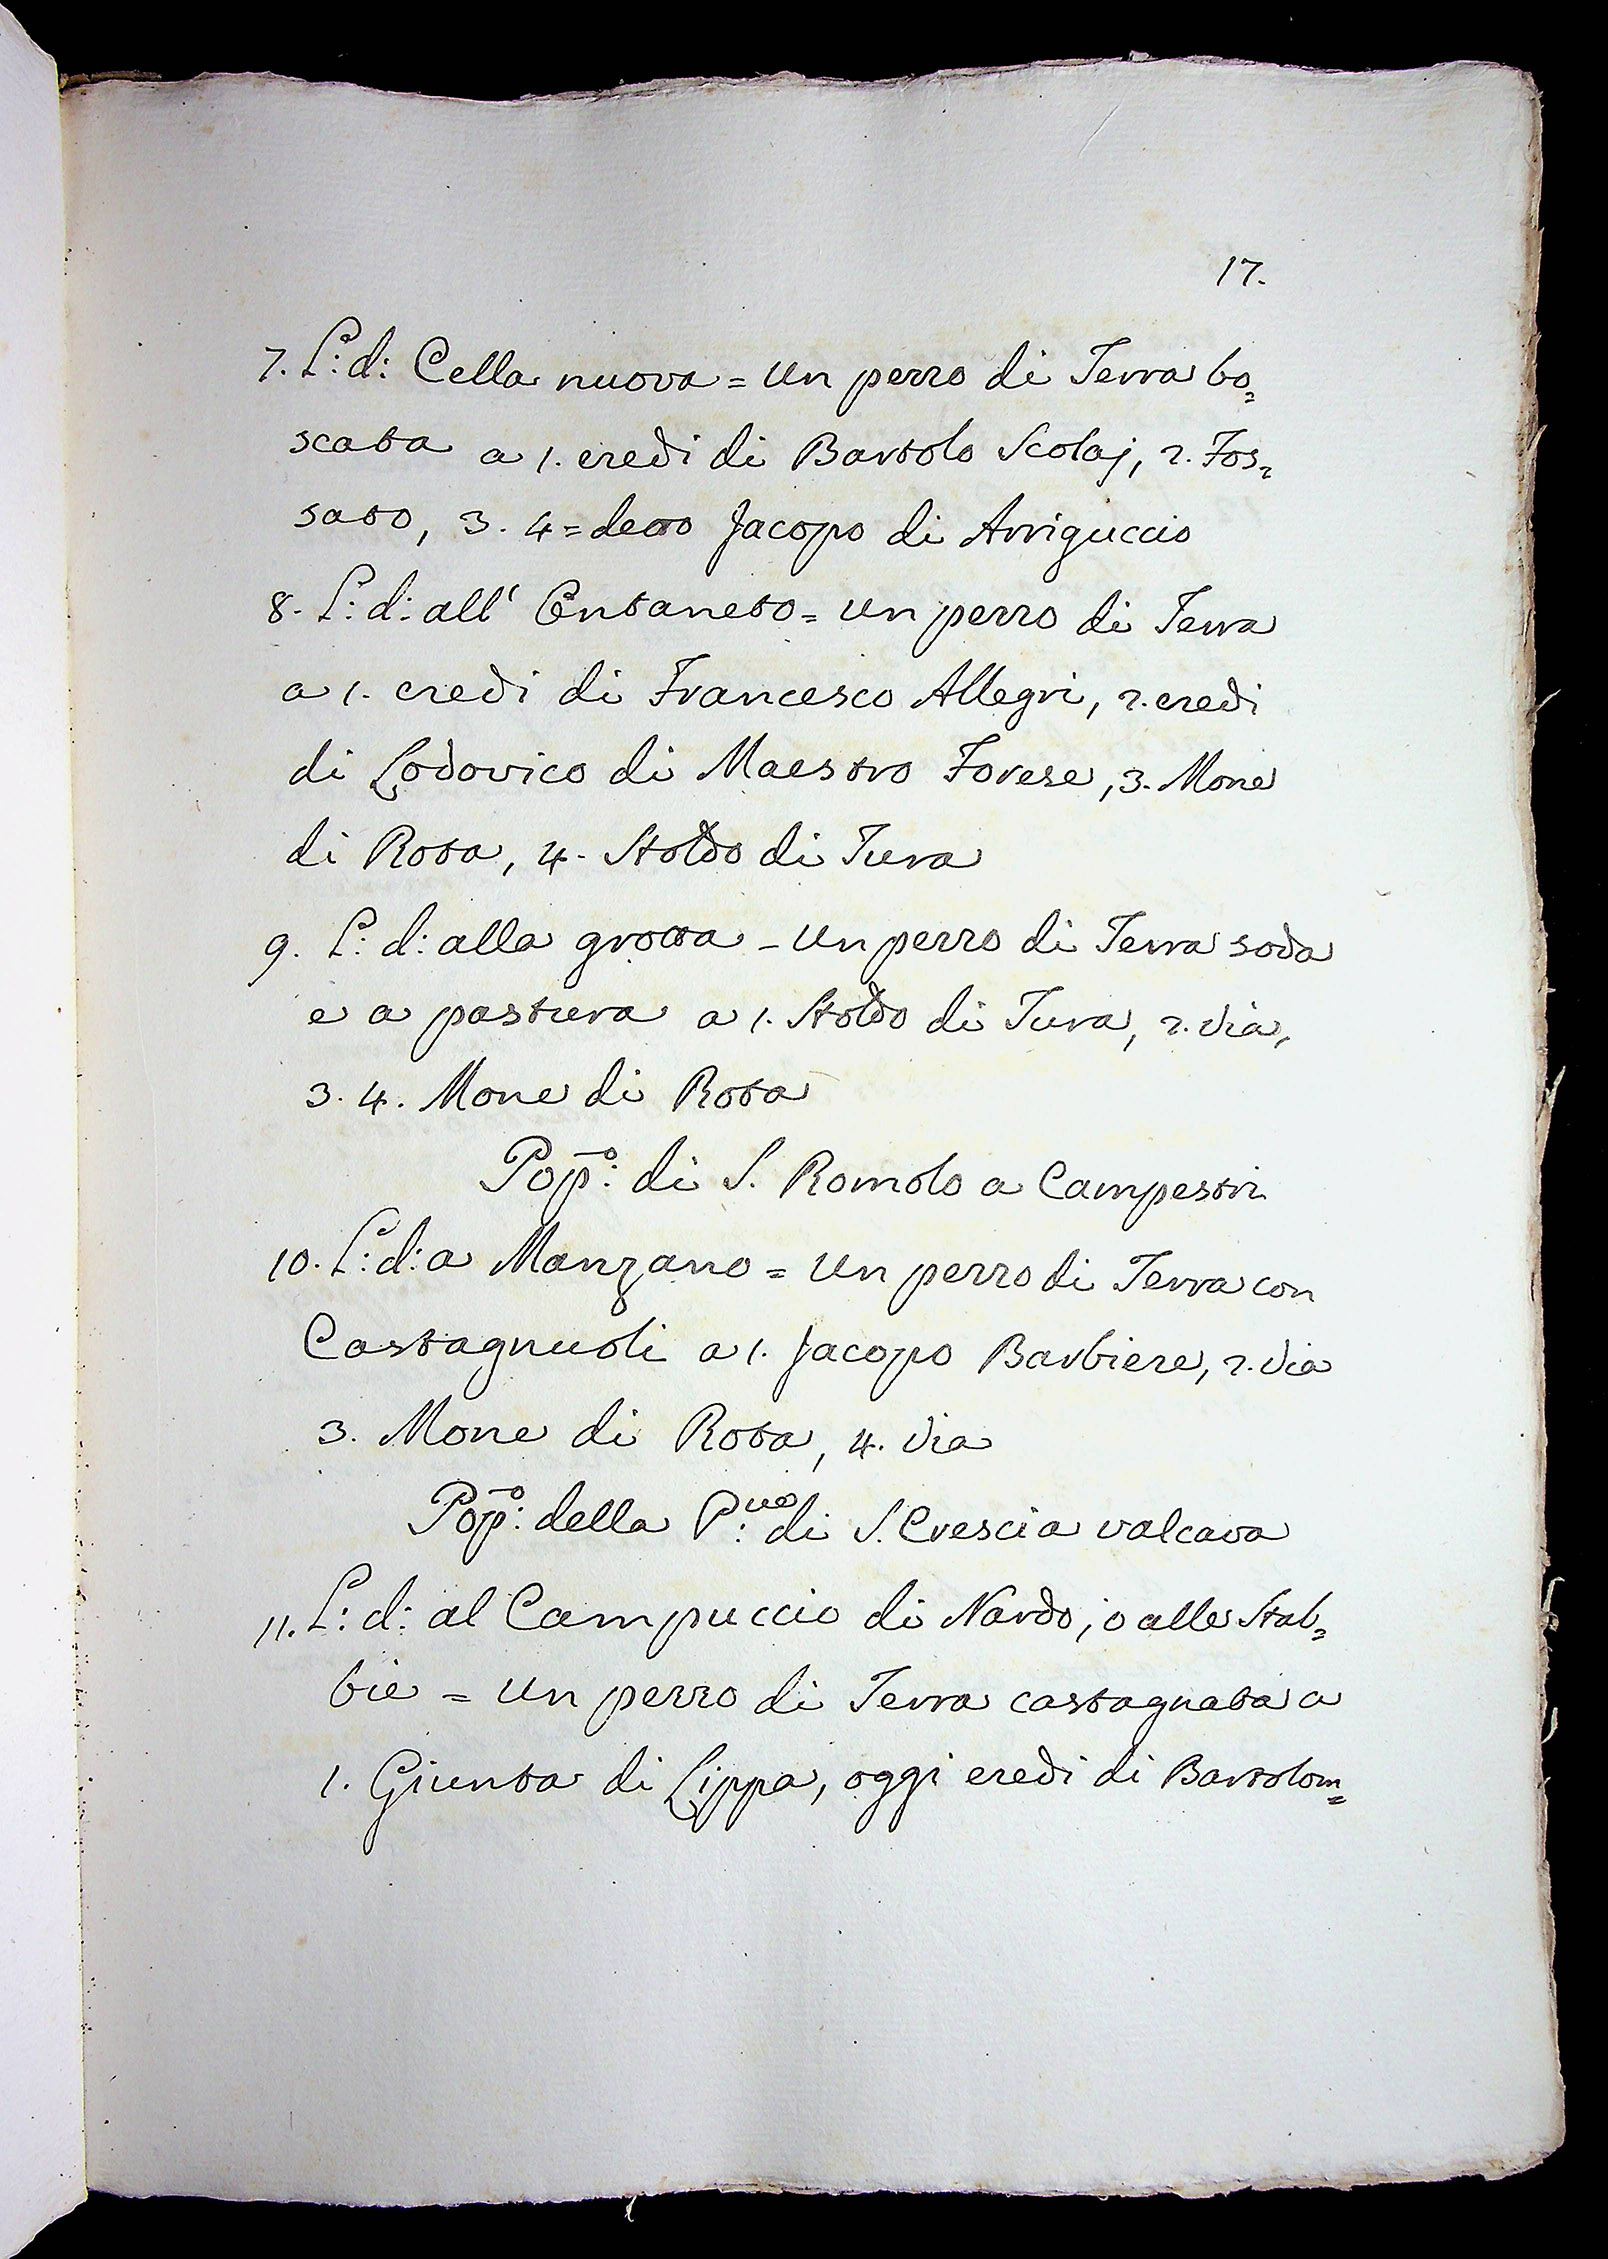 17.
7. L: d: Cella nuova = un pezzo di Terra bo=
scata a 1. eredi di Bartolo Scolaj, 2. Fos=
sato, 3. 4 = detto Jacopo di Arriguccio
8. L: d: all' Ontaneto = un pezzo di Terra
a 1. eredi di Francesco Allegri, 2. eredi
di Lodovico di Maestro Forese, 3. Mone
di Rota, 4. Stoldo di Tura
9. L: d: alla grotta - un pezzo di Terra soda
e a pastura a 1. Stoldo di Tura, 2. via,
3. 4. Mone di Rota
Pop:º di S. Romolo a Campestri
10. L: d: a Manzano = un pezzo di Terra con
Castagnuoli a 1. Jacopo Barbiere, 2. via
3. Mone di Rota, 4. via
Pop:º della P:ve di S. Cresci a valcava
11. L: d: al Campuccio di Nardo, o alle Stab=
bie = un pezzo di Terra castagnata a
1. Giunta di Lippa, oggi eredi di Bartolom=